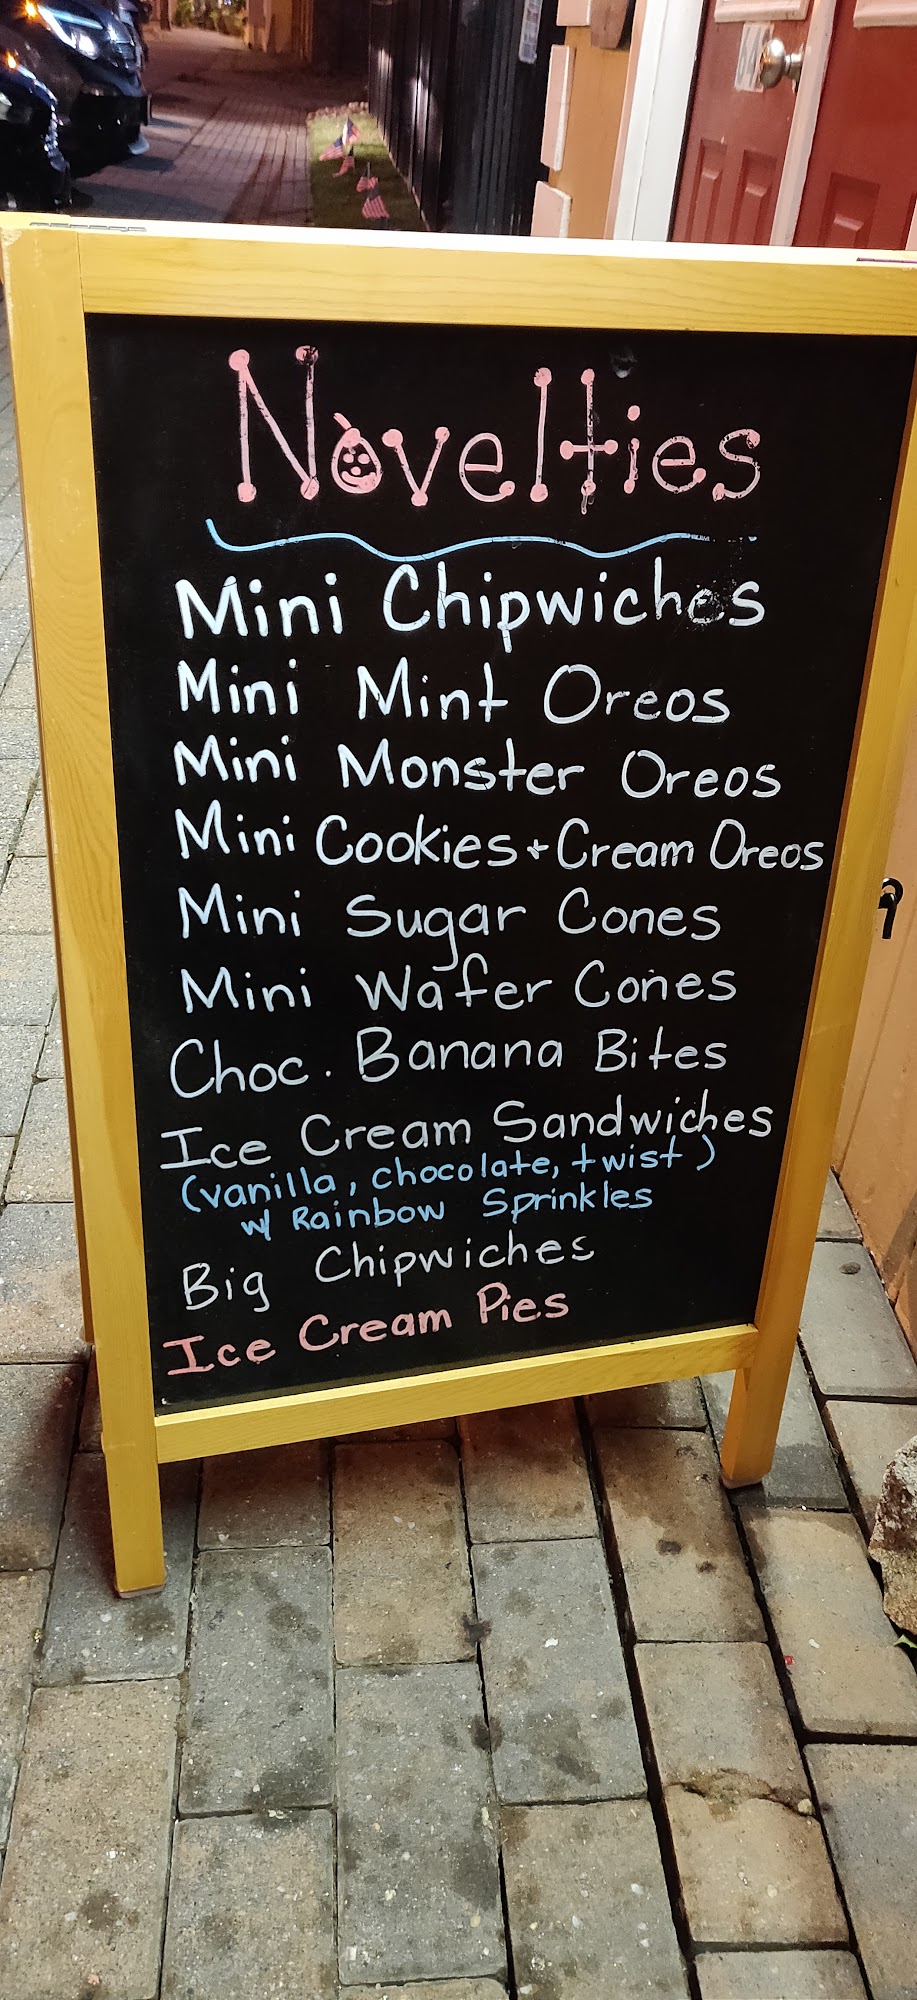 Novelties
Mini Chipwiches
Mini Mint Oreos
Mini Monster Oreos
Mini Cookies + Cream Oreos
Mini Sugar Cones
Mini Wafer Cones
Choc. Banana Bites
Ice Cream Sandwiches
(vanilla, chocolate, twist)
w/ Rainbow Sprinkles
Big Chipwiches
Ice Cream Pies